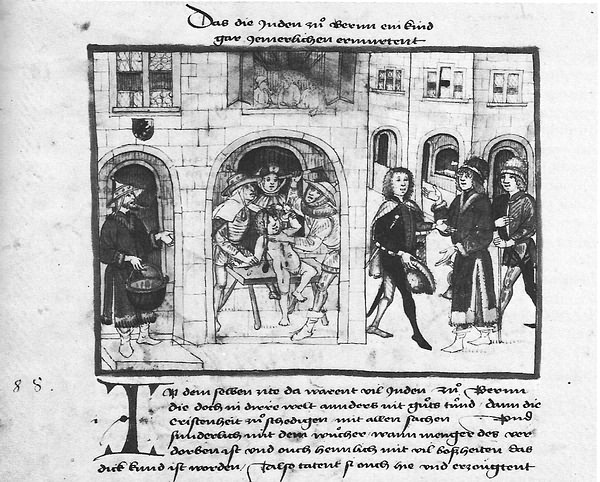 Das die Juden zů Bernn ein kind
gar Jemerlichen ermurtent
8 5.
IN dem selben zite da warent vil Juden zů Bernn
die doch in dirre welt annders nit gůts tůnd dann die
Cristenheit zů schedigen mit allen sachen Und
sunderlich mit dem wůcher wann menger des ver
dorben ist und ouch heimlich mit vil boßheiten das
dick kund ist worden / Also tatent si ouch hie und erzöugtent